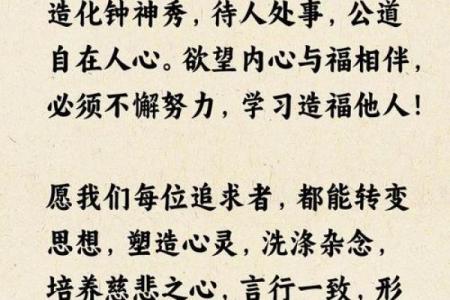 造化钟神秀，待人处事，公道
自在人心。欲望内心与福相伴，
必须不懈努力，学习造福他人！
愿我们每位追求者，都能转变
思想，塑造心灵，洗涤杂念，
培养慈悲之心，言行一致，形